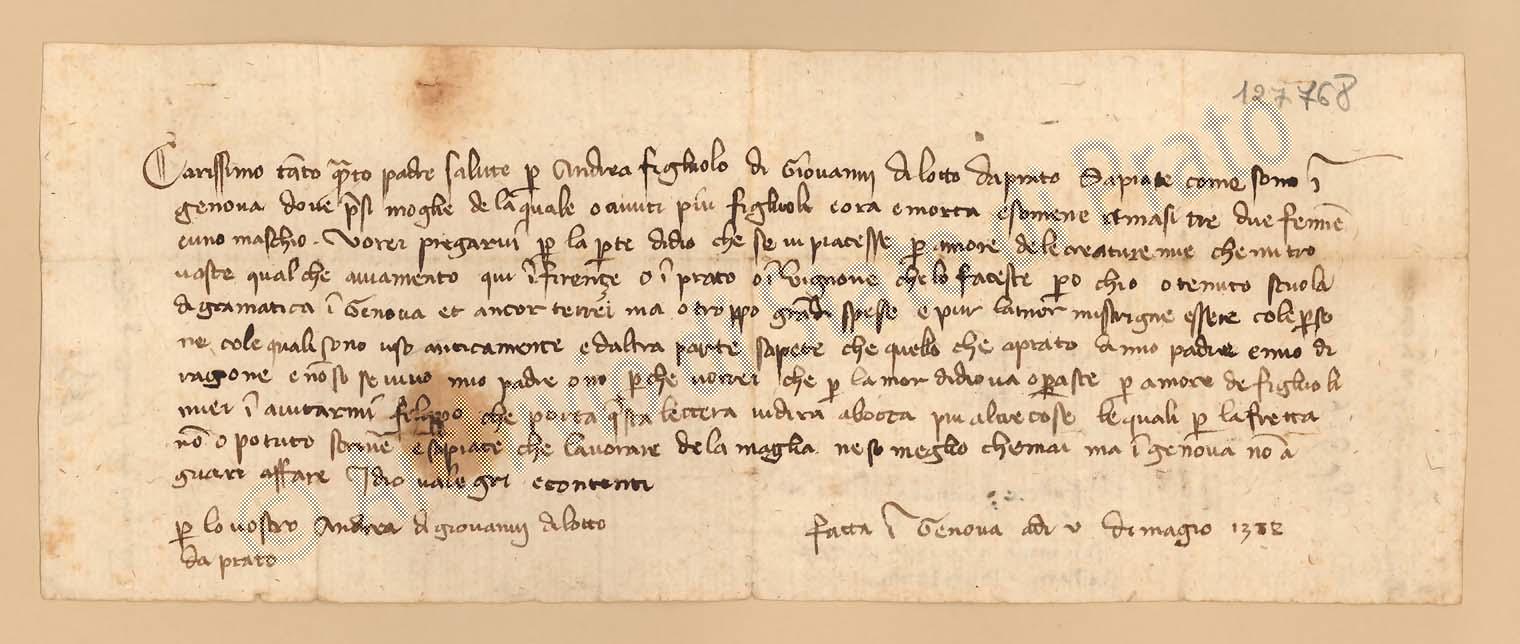 127768
Carissimo tāto q̄to padre salute p Andrea figliuolo di Giovanni di lotto da prato Sapiate come sono ī
genova dove p̄si moglie de la quale o avuti piu figliuoli e ora e morta e somene rimasi tre due femīe
e uno maschio. Vorei pregarvi p la pte di dio che se vi piacesse p amore de le creature mie che mi tro
vaste qualche aviamento qui ī firenze o ī prato o ī vignone che lo faceste po chio o tenuto scuola
di gramatica ī Genova et ancor terrei ma o troppo grādi spese e pur mistrigne essere cole pso
ne cole quali sono uso anticamente e daltra parte sapete che quello che a prato a mio padre e mio di
ragone e nō so se vivo mio padre o no pche vorrei che p lamor didio va opaste p amore de figliuoli
miei ī aiutarmi filippo che porta q̄sta lettera vi dira a bocca piu altre cose le quali p la fretta
nō o potuto scrivē e sapiate che lavorare de la maglia ne so meglio che mai ma ī genova nō a
guari affare Idio valegri e contenti
p lo vostro Andrea di giovanni di lotto
da prato
fatta ī Genova adi v di magio 1388